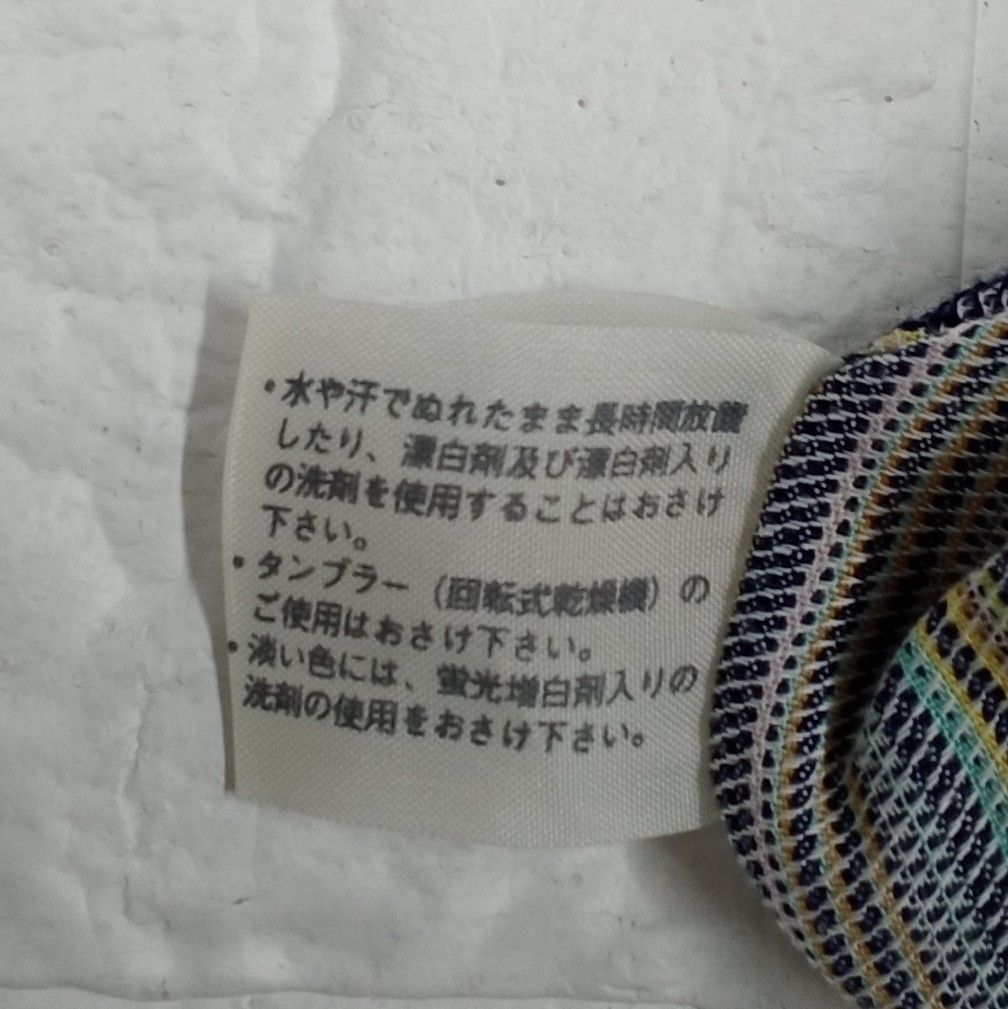 ・水や汗でぬれたまま長時間放置
したり、漂白剤及び漂白剤入り
の洗剤を使用することはおさけ
下さい。
・タンブラー（回転式乾燥機）の
ご使用はおさけ下さい。
・淡い色には、蛍光増白剤入りの
洗剤の使用をおさけ下さい。